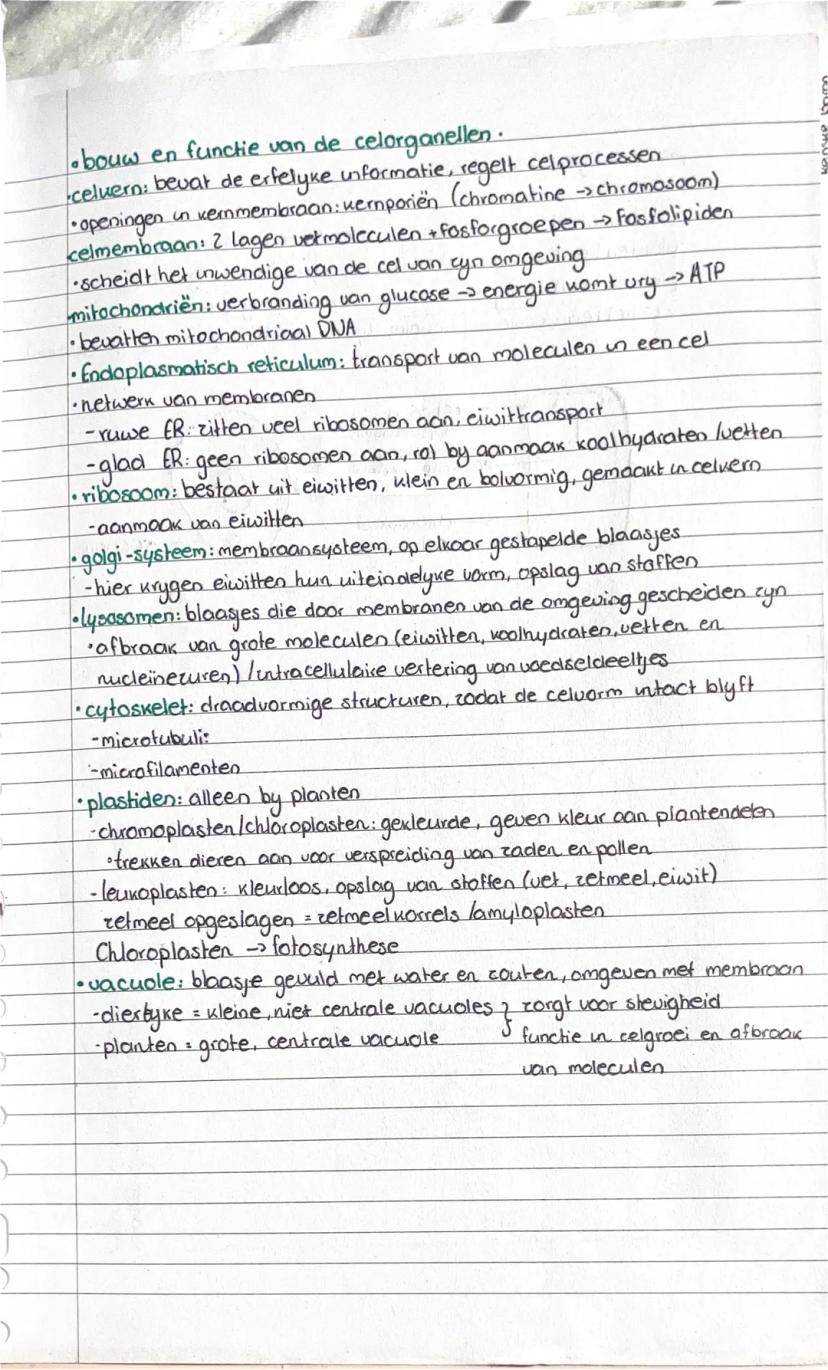 • bouw en functie van de celorganellen.
• celkern: bevat de erfelyke informatie, regelt celprocessen
• openingen in kernmembraan: kernporiën (chromatine → chromosoom)
celmembraan: 2 lagen vetmoleculen + fosforgroepen → fosfolipiden
• scheidt het inwendige van de cel van zyn omgeving
mitochondriën: verbranding van glucose → energie komt vry → ATP
• bevatten mitochondriaal DNA
• Endoplasmatisch reticulum: transport van moleculen in een cel
• netwerk van membranen
- ruwe ER: zitten veel ribosomen aan, eiwittransport
- glad ER: geen ribosomen aan, rol by aanmaak koolhydraten/vetten
• ribosoom: bestaat uit eiwitten, klein en bolvormig, gemaakt in celkern
- aanmaak van eiwitten
• golgi-systeem: membraansysteem, op elkaar gestapelde blaasjes
- hier krygen eiwitten hun uiteindelyke vorm, opslag van stoffen
• lysosomen: blaasjes die door membranen van de omgeving gescheiden zyn
• afbraak van grote moleculen (eiwitten, koolhydraten, vetten en
nucleïnezuren) / intracellulaire vertering van voedseldeeltjes
• cytoskelet: draadvormige structuren, zodat de celvorm intact blyft
- microtubuli:
- microfilamenten
• plastiden: alleen by planten
- chromoplasten/chloroplasten: gekleurde, geven kleur aan plantendelen
• trekken dieren aan voor verspreiding van zaden en pollen
- leukoplasten: kleurloos, opslag van stoffen (vet, zetmeel, eiwit)
zetmeel opgeslagen = zetmeelkorrels /amyloplasten
Chloroplasten → fotosynthese
• vacuole: blaasje gevuld met water en zouten, omgeven met membraan
- dierlyke = kleine, niet centrale vacuoles } zorgt voor stevigheid
- planten = grote, centrale vacuole functie in celgroei en afbraak
van moleculen